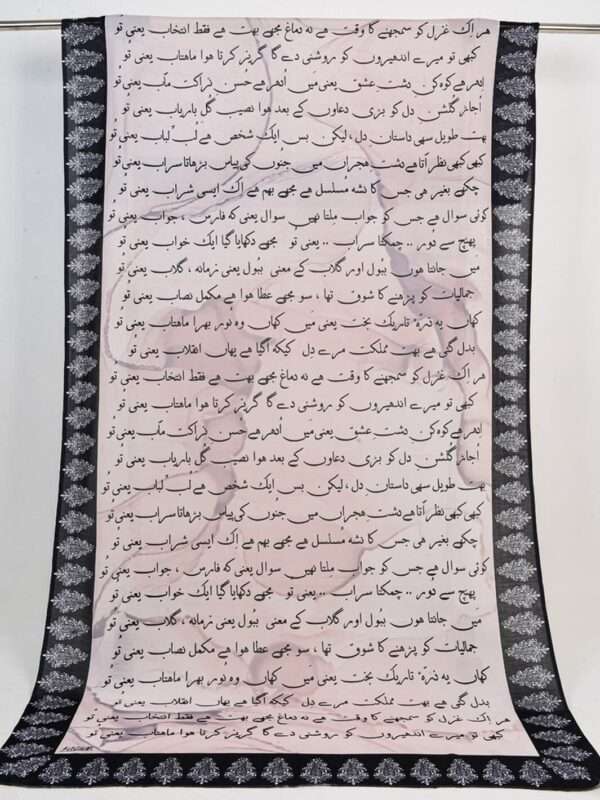 ہر اِک غزل کو سمجھنے کا وقت ہے نہ دماغ مجھے بہت ہے فقط انتخاب یعنی تُو
کبھی تو میرے اندھیروں کو روشنی دے گا گریز کرتا ہوا ماہتاب یعنی تُو
اِدھر ہے کوہ کن دشتِ عشق یعنی مَیں اُدھر ہے حُسنِ نزاکت مآب یعنی تُو
اُجاڑ گُلشنِ دل کو بڑی دعاوں کے بعد ہوا نصیب گُل باریاب یعنی تُو
بہت طویل سہی داستانِ دل ، لیکن بس ایک شخص ہے لُبِ لُباب یعنی تُو
کبھی کبھی نظر آتا ہے دشتِ ہجراں میں جنُوں کی پیاس بڑھاتا سراب یعنی تُو
چکھے بغیر ہی جس کا نشہ مُسلسل ہے مجھے بھم ہے اِک ایسی شراب یعنی تُو
کوئی سوال ہے جس کو جواب مِلتا نہیں سوال یعنی کہ فارس ، جواب یعنی تُو
پہنچ سے دُور .. چمکتا سراب .. یعنی تُو مجھے دکھایا گیا ایک خواب یعنی تُو
میں جانتا ہوں ببُول اور گلاب کے معنی ببُول یعنی زمانہ ، گلاب یعنی تُو
جمالیات کو پڑھنے کا شوق تھا ، سو مجھے عطا ہوا ہے مکمل نصاب یعنی تُو
کہاں یہ ذرّہِ تاریک بخت یعنی مَیں کہاں وہ نُور بھرا ماہتاب یعنی تُو
بدل گئی ہے بہت مملکت مرے دِل کی کہ آگیا ہے یہاں انقلاب یعنی تُو
ہر اِک غزل کو سمجھنے کا وقت ہے نہ دماغ مجھے بہت ہے فقط انتخاب یعنی تُو
کبھی تو میرے اندھیروں کو روشنی دے گا گریز کرتا ہوا ماہتاب یعنی تُو
اِدھر ہے کوہ کن دشتِ عشق یعنی مَیں اُدھر ہے حُسنِ نزاکت مآب یعنی تُو
اُجاڑ گُلشنِ دل کو بڑی دعاوں کے بعد ہوا نصیب گُل باریاب یعنی تُو
بہت طویل سہی داستانِ دل ، لیکن بس ایک شخص ہے لُبِ لُباب یعنی تُو
کبھی کبھی نظر آتا ہے دشتِ ہجراں میں جنُوں کی پیاس بڑھاتا سراب یعنی تُو
چکھے بغیر ہی جس کا نشہ مُسلسل ہے مجھے بھم ہے اِک ایسی شراب یعنی تُو
کوئی سوال ہے جس کو جواب مِلتا نہیں سوال یعنی کہ فارس ، جواب یعنی تُو
پہنچ سے دُور .. چمکتا سراب .. یعنی تُو مجھے دکھایا گیا ایک خواب یعنی تُو
میں جانتا ہوں ببُول اور گلاب کے معنی ببُول یعنی زمانہ ، گلاب یعنی تُو
جمالیات کو پڑھنے کا شوق تھا ، سو مجھے عطا ہوا ہے مکمل نصاب یعنی تُو
کہاں یہ ذرّہِ تاریک بخت یعنی مَیں کہاں وہ نُور بھرا ماہتاب یعنی تُو
بدل گئی ہے بہت مملکت مرے دِل کی کہ آگیا ہے یہاں انقلاب یعنی تُو
ہر اِک غزل کو سمجھنے کا وقت ہے نہ دماغ مجھے بہت ہے فقط انتخاب یعنی تُو
کبھی تو میرے اندھیروں کو روشنی دے گا گریز کرتا ہوا ماہتاب یعنی تُو